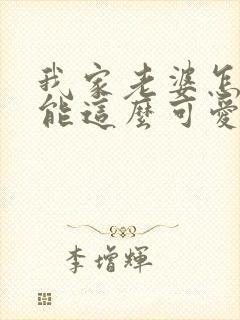 我家老婆怎
能這麼可愛
李增輝